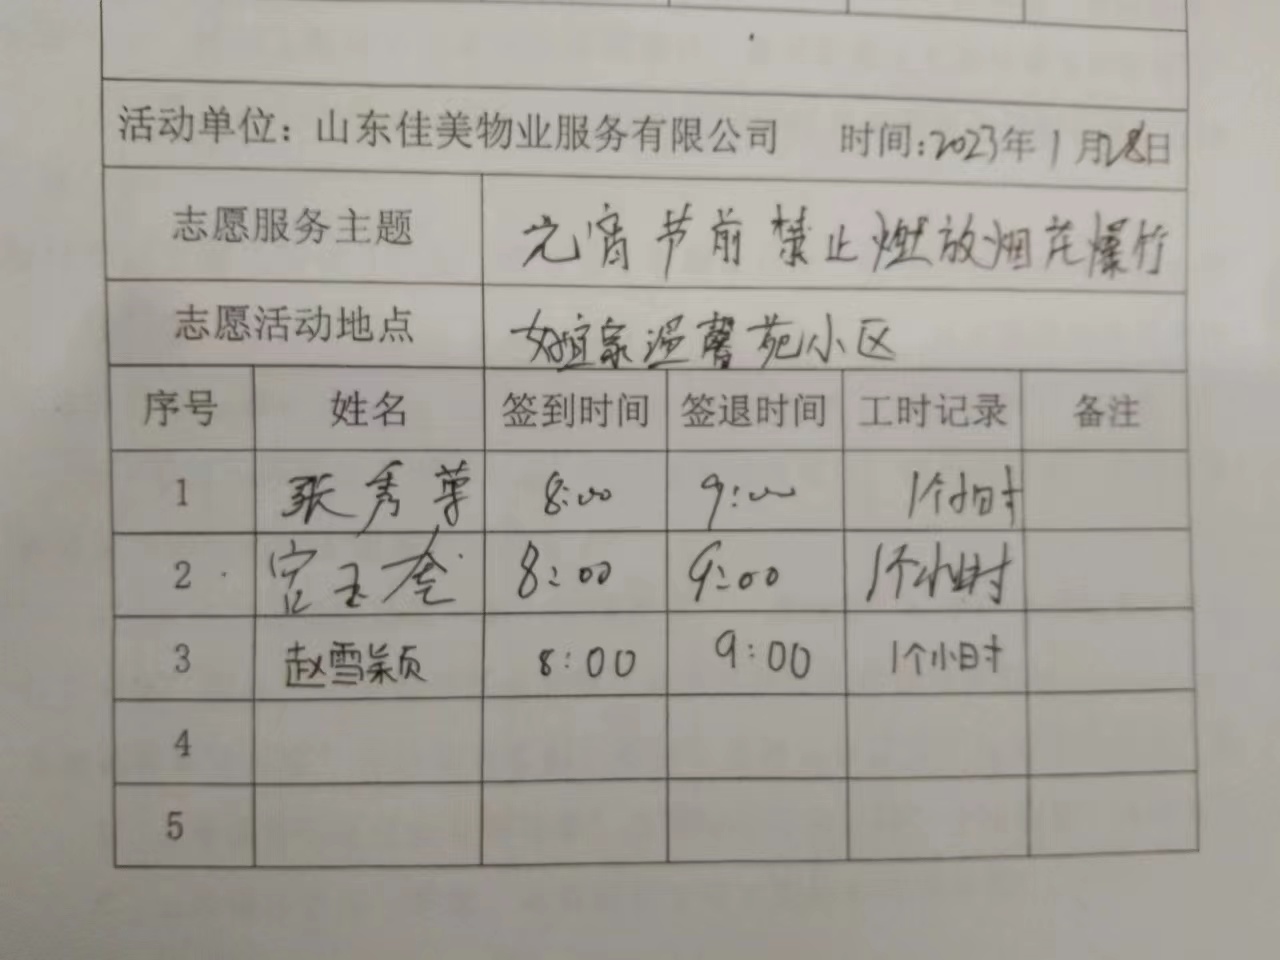 活动单位：山东佳美物业服务有限公司 时间：2023年1月28日
志愿服务主题 元宵节前禁止燃放烟花爆竹
志愿活动地点 家温馨苑小区
序号 姓名 签到时间 签退时间 工时记录 备注
1 张秀 8:00 9:00 1个小时
2 玉 8:00 9:00 1个小时
3 赵雪颖 8:00 9:00 1个小时
4
5